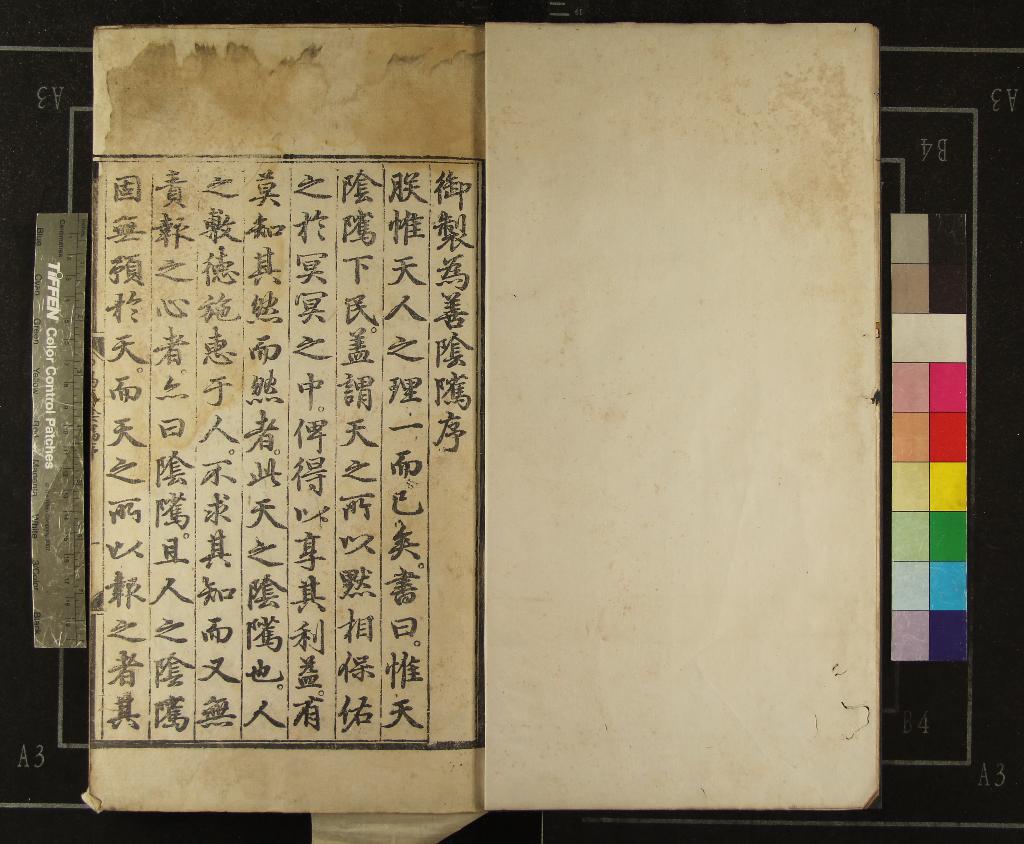 御製為善陰隲序
朕惟天人之理一而已矣。書曰。惟天
陰隲下民。蓋謂天之所以黙相保佑
之於冥冥之中。俾得以享其利益。有
莫知其然而然者。此天之陰隲也。人
之敷德施惠于人。不求其知而又無
責報之心者。亦曰陰隲。且人之陰隲
固無預於天。而天之所以報之者其
TIFFEN Color Control Patches
A3
B4
A3
B4
A3
A3